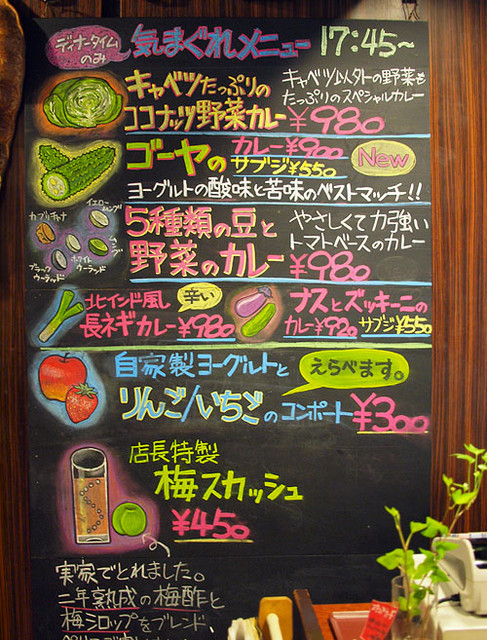 ディナータイムのみ
気まぐれメニュー 17:45〜
キャベツたっぷりの
ココナッツ野菜カレー ¥980
キャベツ以外の野菜も
たっぷりのスペシャルカレー
ゴーヤの カレー ¥900
サブジ ¥550
New
ヨーグルトの酸味と苦味のベストマッチ!!
カブリチャナ
イエロームング
ブラックウーラッド
ホワイトウーラッド
5種類の豆と
野菜のカレー ¥980
やさしくて力強い
トマトベースのカレー
北インド風 辛い
長ネギカレー ¥980
ナスとズッキーニの
カレー ¥920 サブジ ¥550
自家製ヨーグルトと
えらべます。
りんご/いちごのコンポート ¥300
店長特製
梅スカッシュ
¥450
実家でとれました。
二年熟成の梅酢と
梅シロップをブレンド、